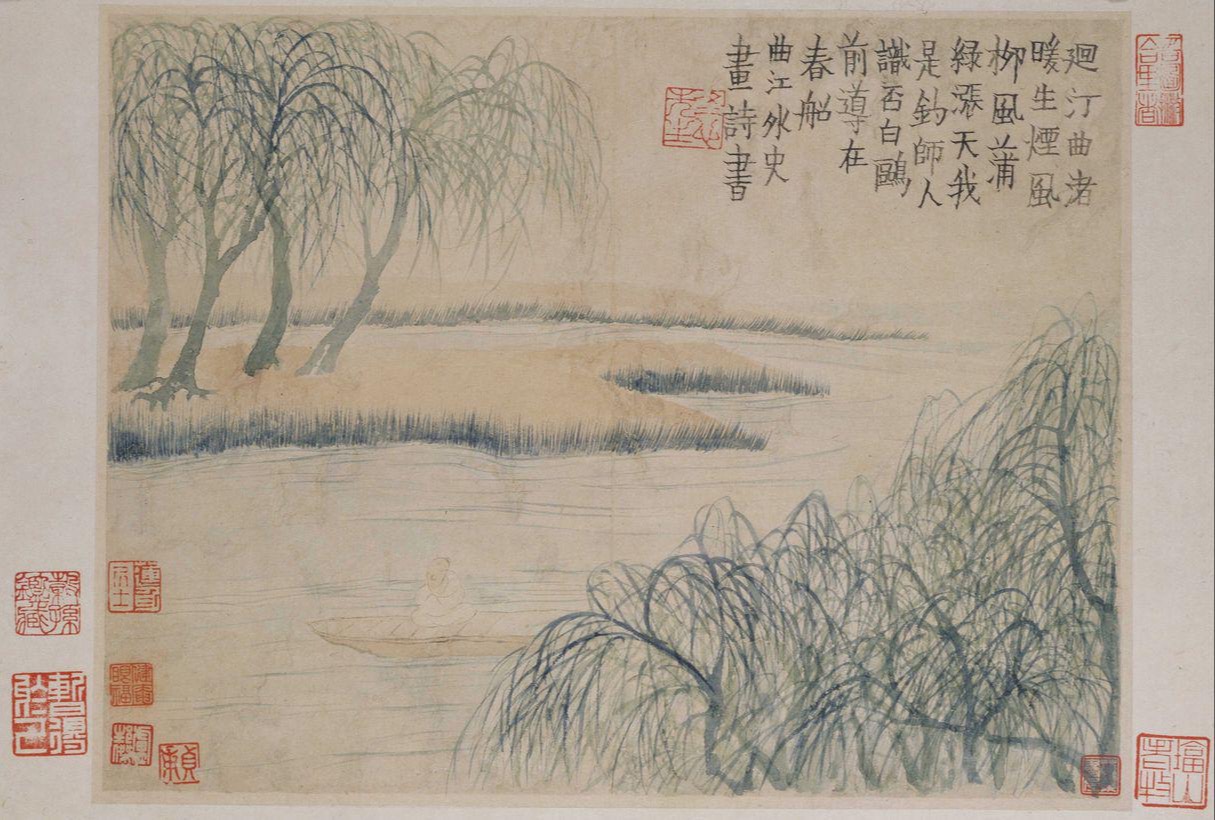 廻汀曲渚
暖生煙風
柳風蒲
綠漲天我
是釣師人
識否白鷗
前導在
春船
曲江外史
畫詩書